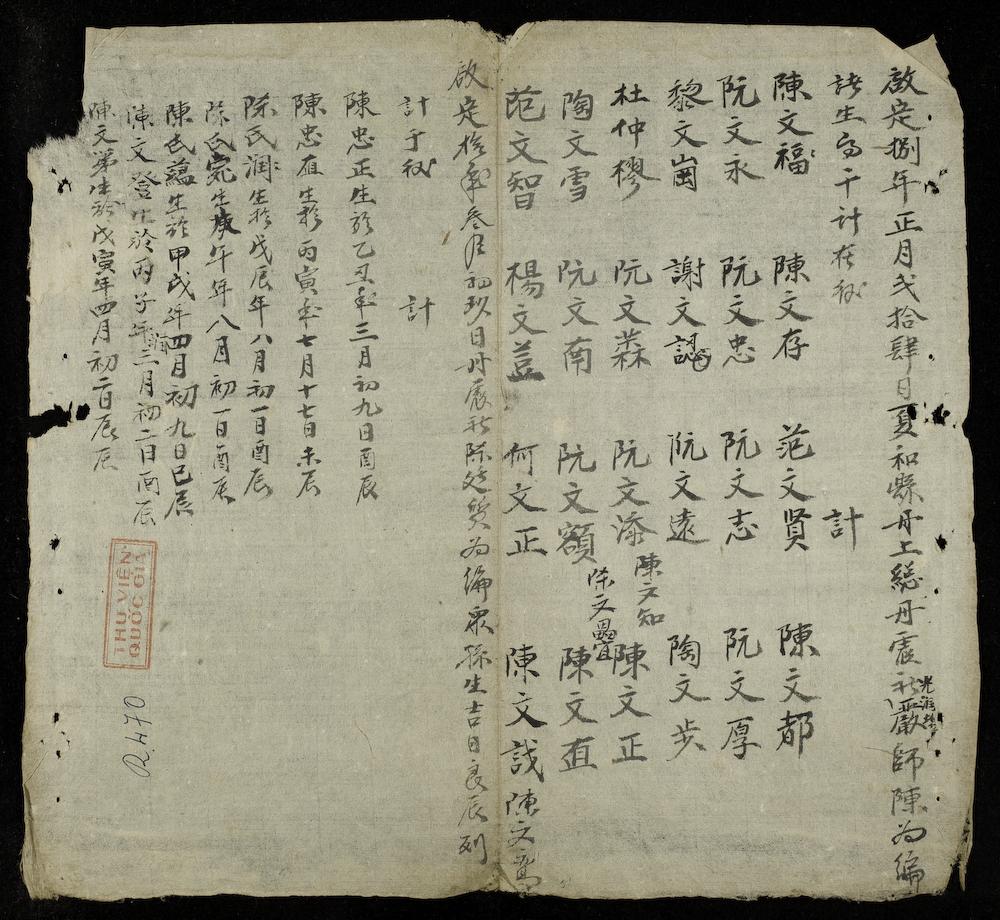 啟定捌年正月弍拾肆日夏和縣丹上總丹震社嚴師陳為編
諸生於干計在後
計
陳文福 陳文存 范文賢 陳文都
阮文永 阮文忠 阮文志 阮文厚
黎文崗 謝文認 阮文遠 陶文步
杜仲樛 阮文森 阮文添 陳文知 陳文正
陶文雪 阮文南 阮文額 陳文疊 陳文直
范文智 楊文荳 何文正 陳文哉 陳文
啟定拾年叁月初玖日丹震社陳廷質為編眾孫生吉日良辰列
計于後 計
陳忠正生於乙丑年三月初九日酉辰
陳忠雁生於丙寅年七月十七日未辰
陳氏潤生於戊辰年八月初一日酉辰
陳氏完生庚午年八月初一日酉辰
陳氏蘊生於甲戌年四月初九日巳辰
陳文登生於丙子年閏三月初二日酉辰
陳文第生於戊寅年四月初二日辰辰
THƯ VIỆN
QUỐC GIA
R.470